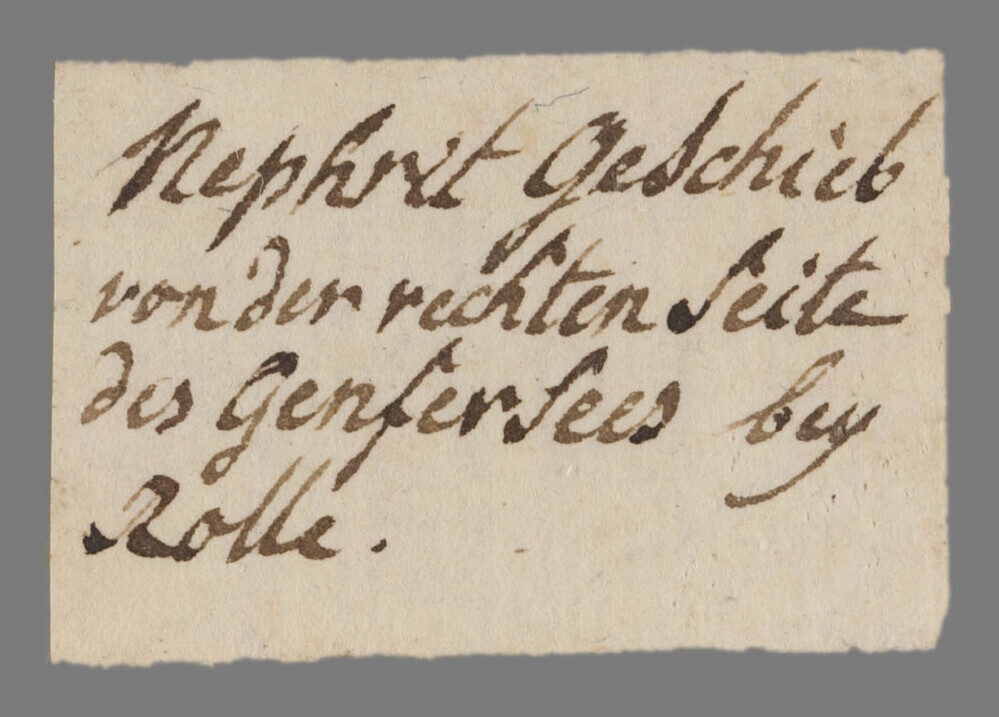 Nephrit Geschieb
von der rechten Seite
des Genfersees bey
Rolle.